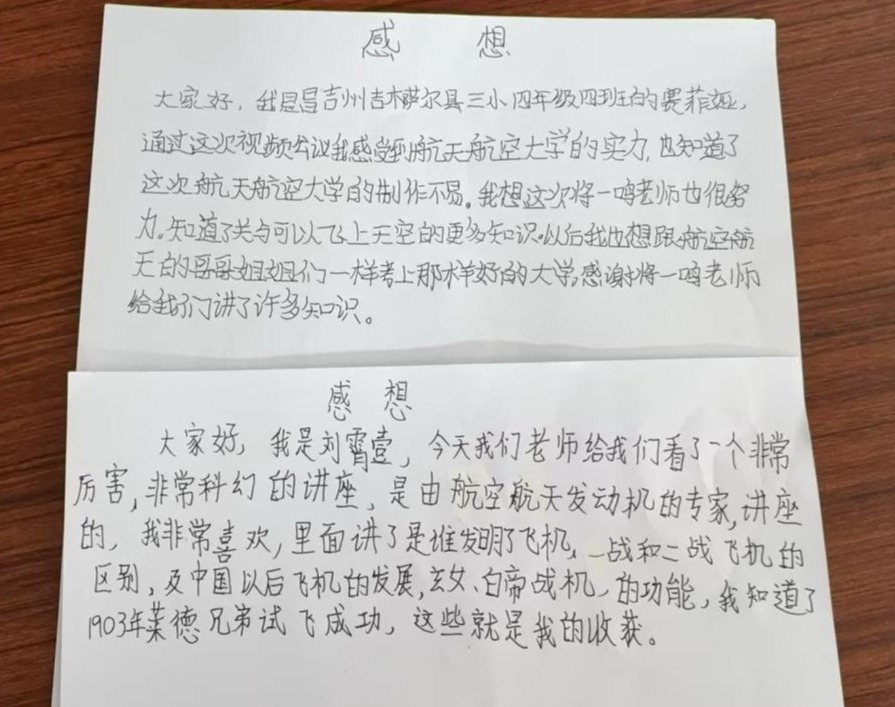 感 想
大家好，我是昌吉州吉木萨尔县三小四年级四班的赛菲娅，
通过这次视频会议我感受到航天航空大学的实力，也知道了
这次航天航空大学的制作不易。我想这次将一鸣老师也很努
力。知道了关与可以飞上天空的更多知识。以后我也想跟航空航
天的哥哥姐姐们一样考上那样好的大学。感谢将一鸣老师
给我们讲了许多知识。
感 想
大家好，我是刘霄壹，今天我们老师给我们看了一个非常
厉害，非常科幻的讲座，是由航空航天发动机的专家，讲座
的，我非常喜欢，里面讲了是谁发明了飞机，一战和二战飞机的
区别，及中国以后飞机的发展，玄女、白帝战机、的功能，我知道了
1903年莱德兄弟试飞成功，这些就是我的收获。